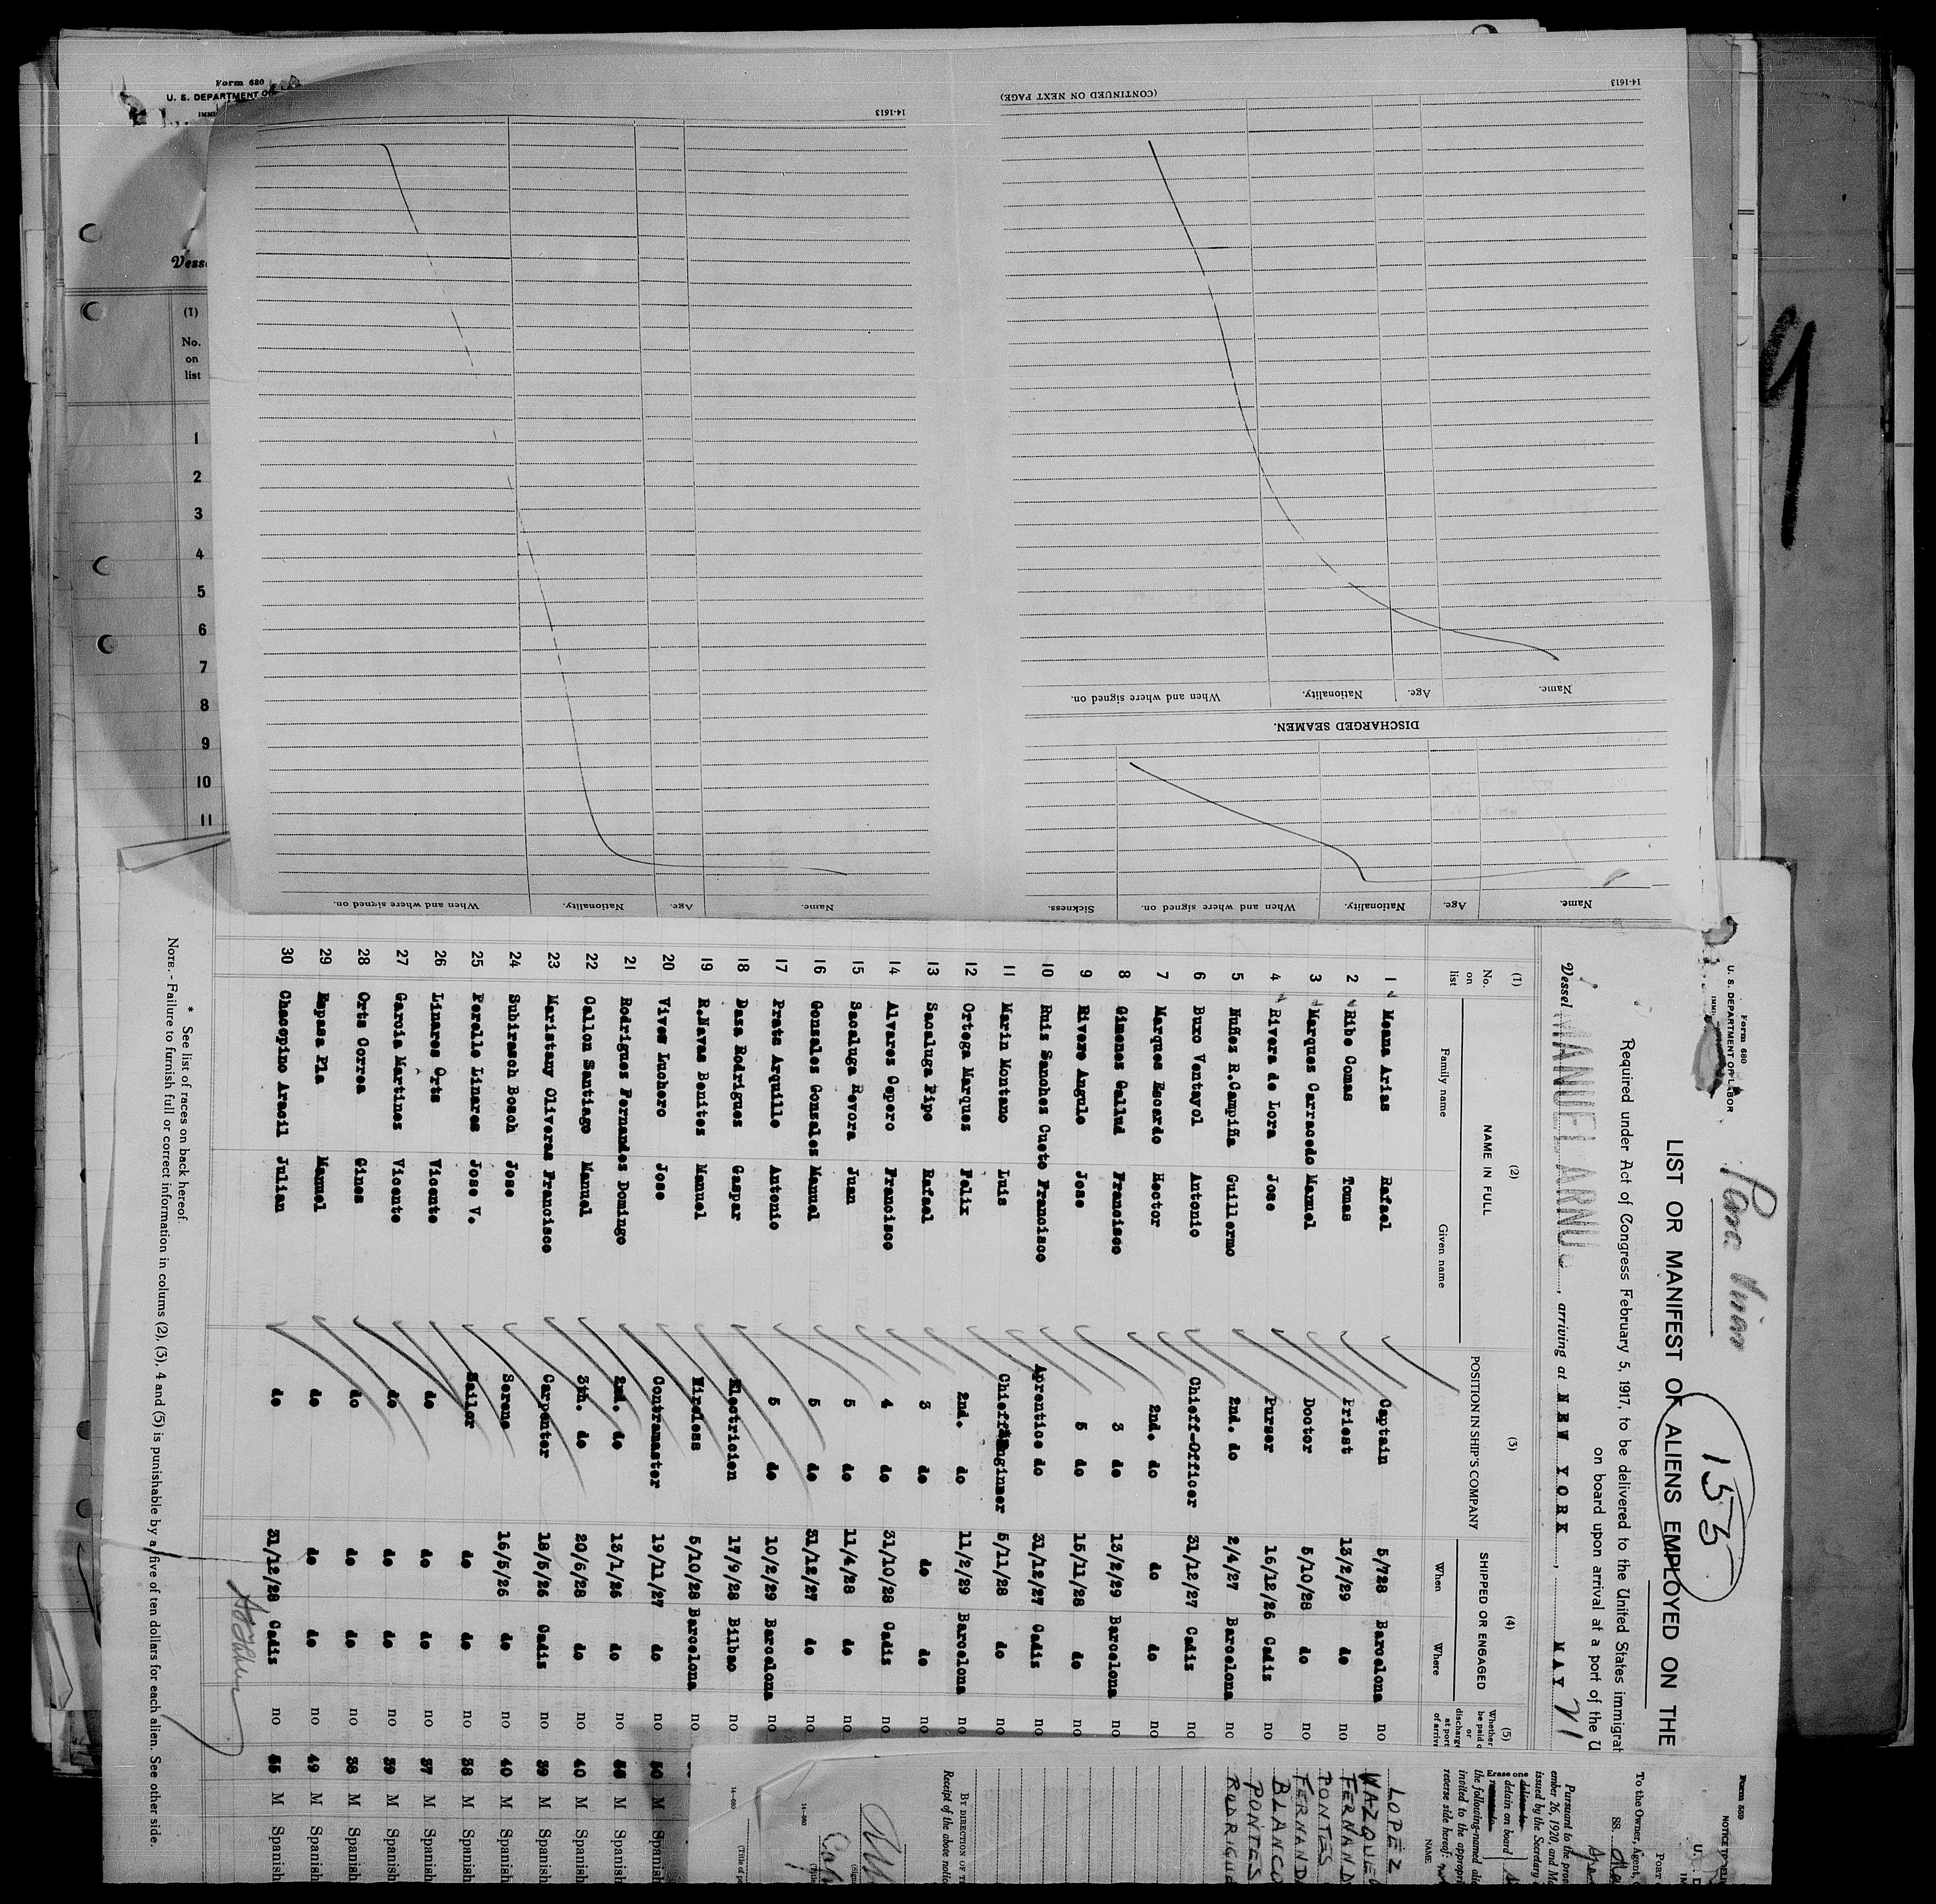 Form 680
U. S. DEPARTMENT O
(1)
No.
on
list
1
2
3
4
5
6
7
8
9
10
11
14-1613
14-1613
(CONTINUED ON NEXT PAGE)
Name.
Age.
Nationality.
When and where signed on.
DISCHARGED SEAMEN.
Name.
Age.
Nationality.
When and where signed on.
Sickness.
Name.
Age.
Nationality.
When and where signed on.
Form 680
U. S. DEPARTMENT OF LABOR
155
LIST OR MANIFEST OF ALIENS EMPLOYED ON THE
Required under Act of Congress February 5, 1917, to be delivered to the United States immigrat
on board upon arrival at a port of the U
Vessel MANUEL ARNUS, arriving at NEW YORK, MAY 21
(1) No. on list
(2) NAME IN FULL Family name Given name
(3) POSITION IN SHIP'S COMPANY
(4) SHIPPED OR ENGAGED When Where
(5) Whether
1 Mena Arias Rafael Captain 5/728 Barcelona no
2 Ribe Comas Tomas Priest 13/2/29 do no
3 Marques Carracedo Manuel Doctor 5/10/28 do no
4 Rivera de Lora Jose Purser 16/12/26 Cadis no
5 Nuñez R.Campiña Guillermo 2nd. do 2/4/27 Barcelona no
6 Buxo Ventayol Antonio Chieff-Officer 31/12/27 Cadis no
7 Marques Escardo Hector 2nd. do do do no
8 Gimenes Gallud Francisco 3 do 13/2/29 Barcelona no
9 Rivere Angulo Jose 5 do 15/11/28 do no
10 Ruis Sanchez Cueto Francisco Aprentice do 31/12/27 Cadis no
11 Marin Montano Luis Chieff 5/11/28 do no
12 Ortega Marques Felix 2nd. do 11/2/29 Barcelona no
13 Sacaluga Pipo Rafael 3 do do do no
14 Alvares Cepero Francisco 4 do 31/10/28 Cadis no
15 Sacaluga Revora Juan 5 do 11/4/28 do no
16 Gonsales Gonsales Manuel 5 do 31/12/27 do no
17 Prats Arquille Antonio 5 do 10/2/29 Barcelona no
18 Dasa Rodrigues Gaspar Electricien 17/9/28 Bilbao no
19 R.Navas Benites Manuel Wireless 5/10/28 Barcelona no
20 Vives Luchero Jose Contramaster 19/11/27 do no 50 M Spanish
21 Rodrigues Fernandes Domingo 2nd. do 13/1/26 do no M Spanish
22 Callon Santiago Manuel 3th. do 20/6/28 do no 40 M Spanish
23 Maristany Oliveras Francisco Carpenter 18/5/26 Cadis no 39 M Spanish
24 Subirasch Bosch Jose Sereno 16/5/26 do no 40 M Spanish
25 Perelle Linares Jose V. Sailor do do no 38 M Spanish
26 Linares Orts Vicente do do do no 37 M Spanish
27 Garcia Martines Vicente do do do no 39 M Spanish
28 Orts Correa Gines do do do no 38 M Spanish
29 Espasa Pla Manuel do do do no 49 M Spanish
30 Chacopino Aracil Julian do 31/12/28 Cadis no M Spanish
* See list of races on back hereof.
NOTE.- Failure to furnish full or correct information in colums (2), (3), 4 and (5) is punishable by a five of ten dollars for each alien. See other side.
Form 559
To the Owner, Agent,
SS.
Pursuant to the prov
ember 26, 1920, and M
issued by the Secretary
Erase one
detain on board
the following-named alie
reverse side hereof:
NAME.
LOPEZ
VAZQUE
FERNAND
PONTES
FERNAND
BLANCO
PONTES
RODRIGUE
BY DIRECTION OF T
Receipt of the above notic
(Title of p